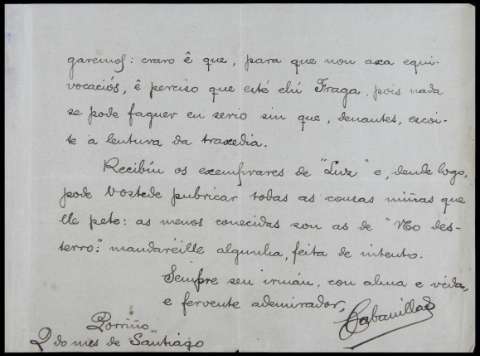 garemos: craro ê que, para que non axa equi-
vocaciós, ê perciso que esté elú Fraga, pois nada
se pode faguer en serio sin que, denantes, escoi-
te a leutura da traxedia.
Recibín os exemprares de "Luz" e, dende logo,
pode Vostede pubricar todas as cousas miñas que
lle pete: as menos conecidas son as de "No des-
terro": mandareille algunha, feita de intento.
Sempre seu irmán, con alma e vida,
e fervente ademirador,
Cabanillas
Porriño
2 do mes de Santiago